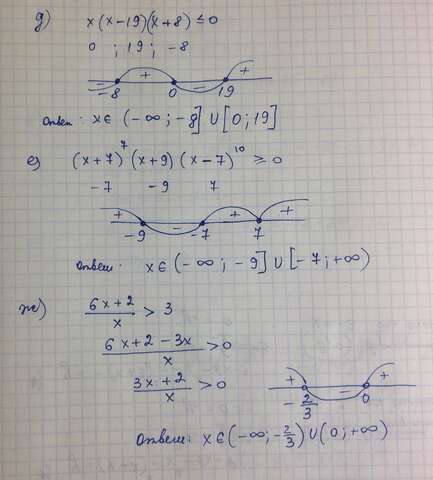 д) x(x-19)(x+8) ≤ 0
0 ; 19 ; -8
- + - +
-8 0 19
Ответ: x ∈ (-∞; -8] ∪ [0; 19]
е) (x+7)⁷ (x+9) (x-7)¹⁰ ≥ 0
-7 -9 7
+ - + +
-9 -7 7
Ответ: x ∈ (-∞; -9] ∪ [-7; +∞)
ж) (6x+2)/x > 3
(6x+2-3x)/x > 0
(3x+2)/x > 0
+ - +
-2/3 0
Ответ: x ∈ (-∞; -2/3) ∪ (0; +∞)